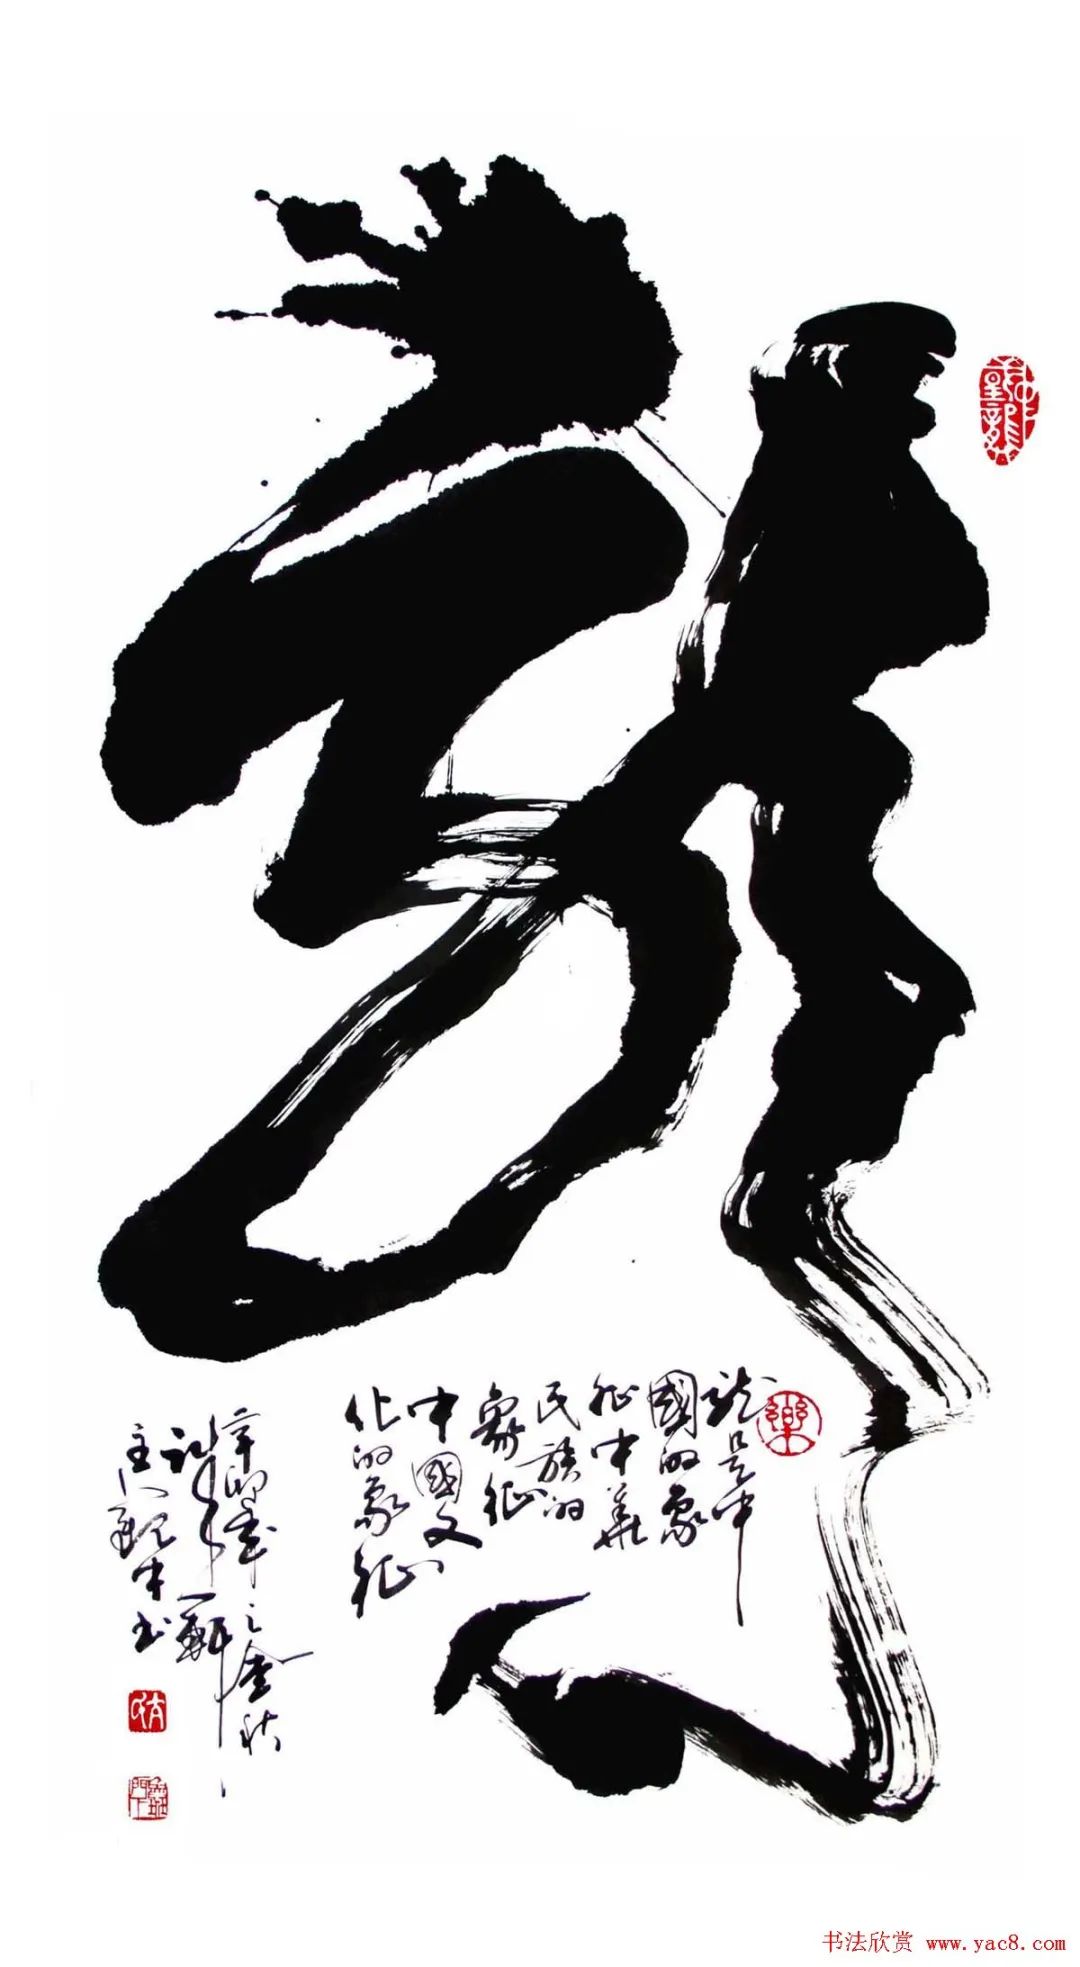 龍
龙是中
國的象
征中華
民族的
象征
中國文
化的象征
辛卯年之金秋
主人
中书
樂
书法欣赏 www.yac8.com